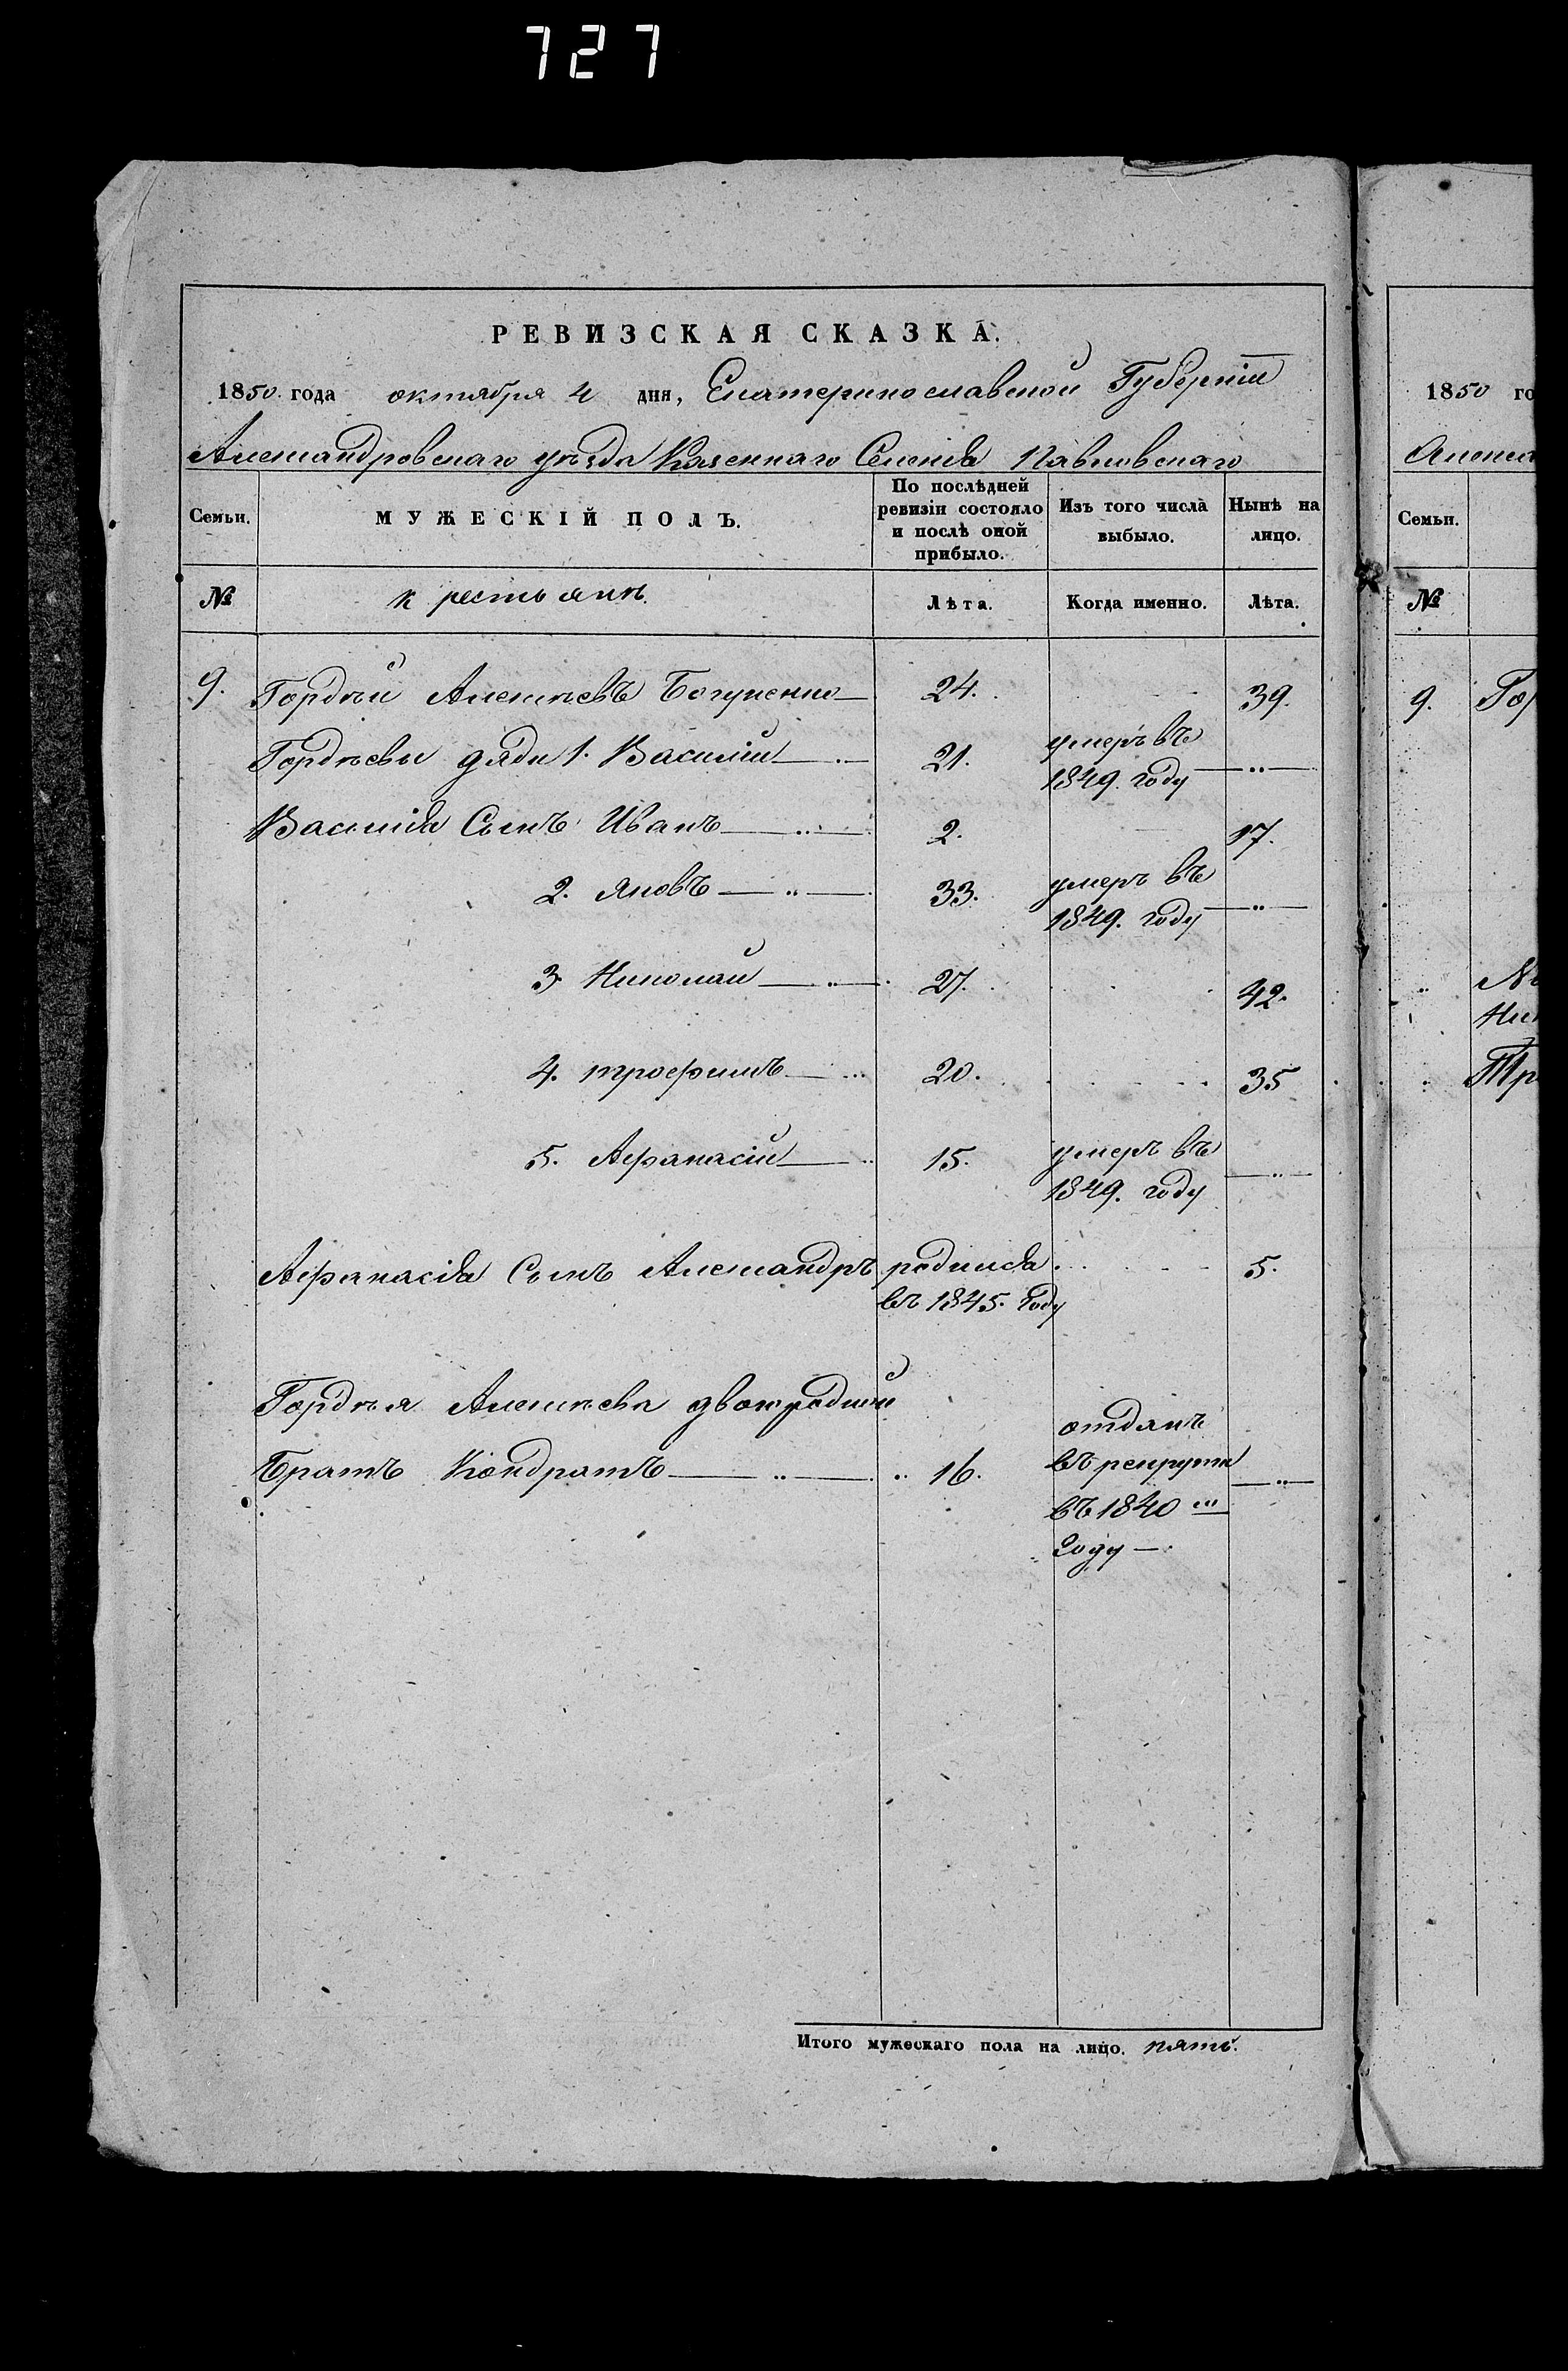 727
РЕВИЗСКАЯ СКАЗКА.
1850 года октября 4 дня, Екатеринославской Губерніи
Александровскаго уѣзда Казеннаго Селенія Павловскаго
Семьи.
МУЖЕСКІЙ ПОЛЪ.
По послѣдней ревизіи состояло и послѣ оной прибыло.
Изъ того числа выбыло.
Нынѣ на лицо.
№ крестьянъ. Лѣта. Когда именно. Лѣта.
9. Гордѣй Алексѣевъ 24. 39.
Гордѣевы дяди 1. Василій 21. умеръ въ 1849. году
Василія Сынъ Иванъ 2. 17.
2. Яковъ 33. умеръ въ 1849. году
3. Николай 27. 42.
4. трофимъ 20. 35
5. Афанасій 15. умеръ въ 1849. году
Афанасія Сынъ Александръ родился въ 1845. году 5.
Гордѣя Алексѣева двоюродный
Братъ Кондратъ 16. отданъ въ рекруты въ 1840 году
Итого мужескаго пола на лицо. пять.
1850 го
Алекса
Семьи.
№
9. Гор
Ни
Тр